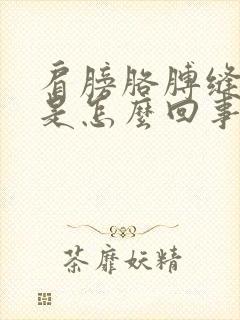 肩膀胳膊缝
是怎麽回事
荼靡妖精